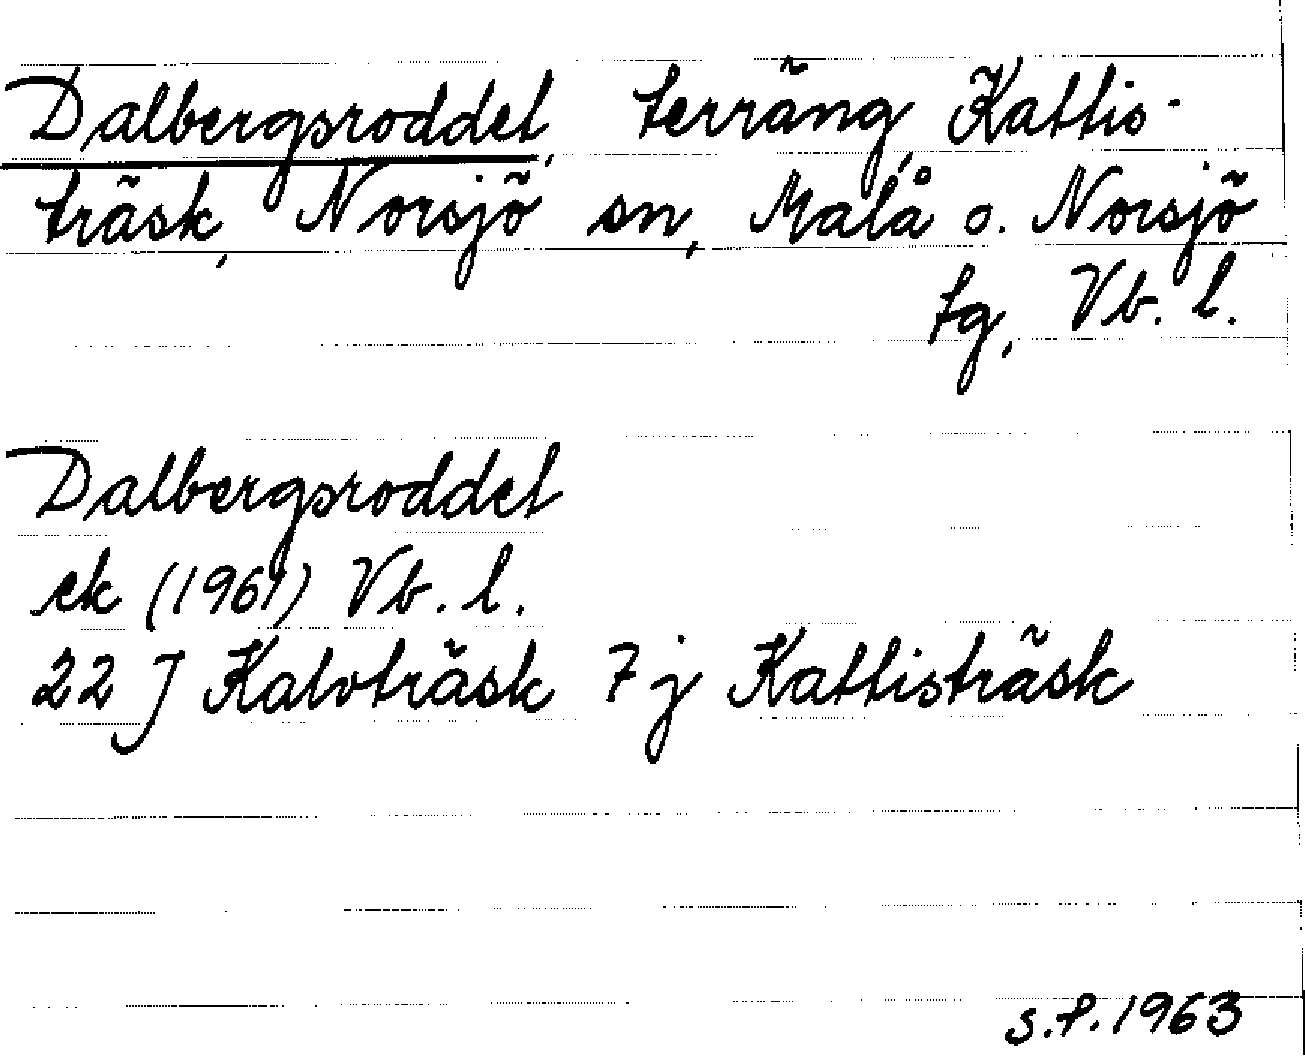 Dalbergsroddet, terräng, Kattis-
träsk, Norsjö sn, Malå o. Norsjö
tg, Vb. l.
Dalbergsroddet
ek (1961) Vb. l.
22 J Kalvträsk 7 j Kattisträsk
S.P. 1963